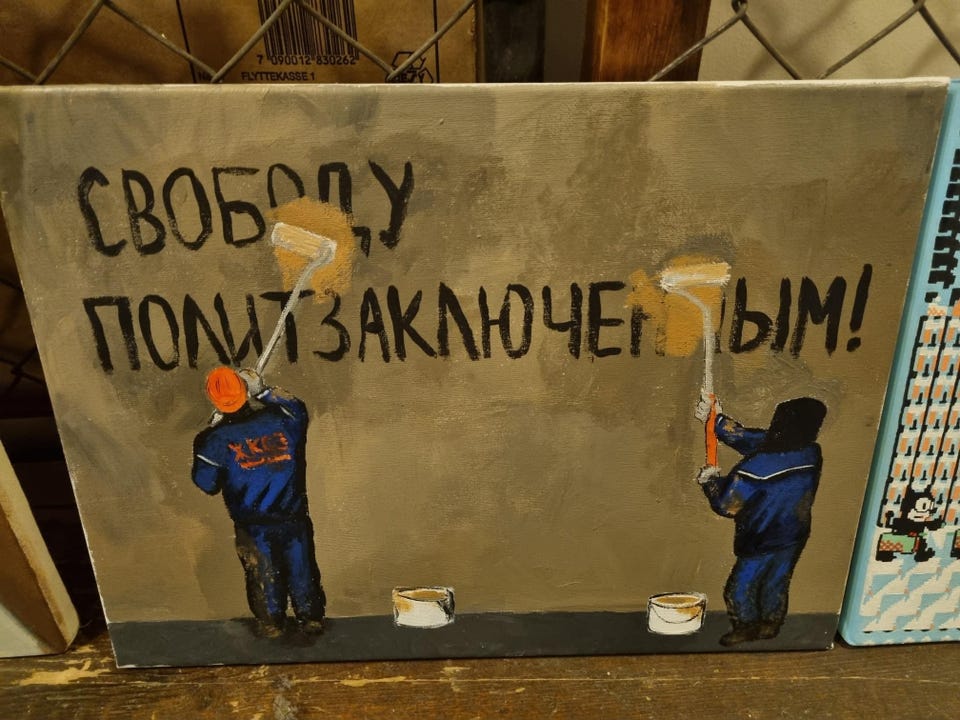 7 090012 830262
FLYTTEKASSE 1
СВОБОДУ
ПОЛИТЗАКЛЮЧЕННЫМ!